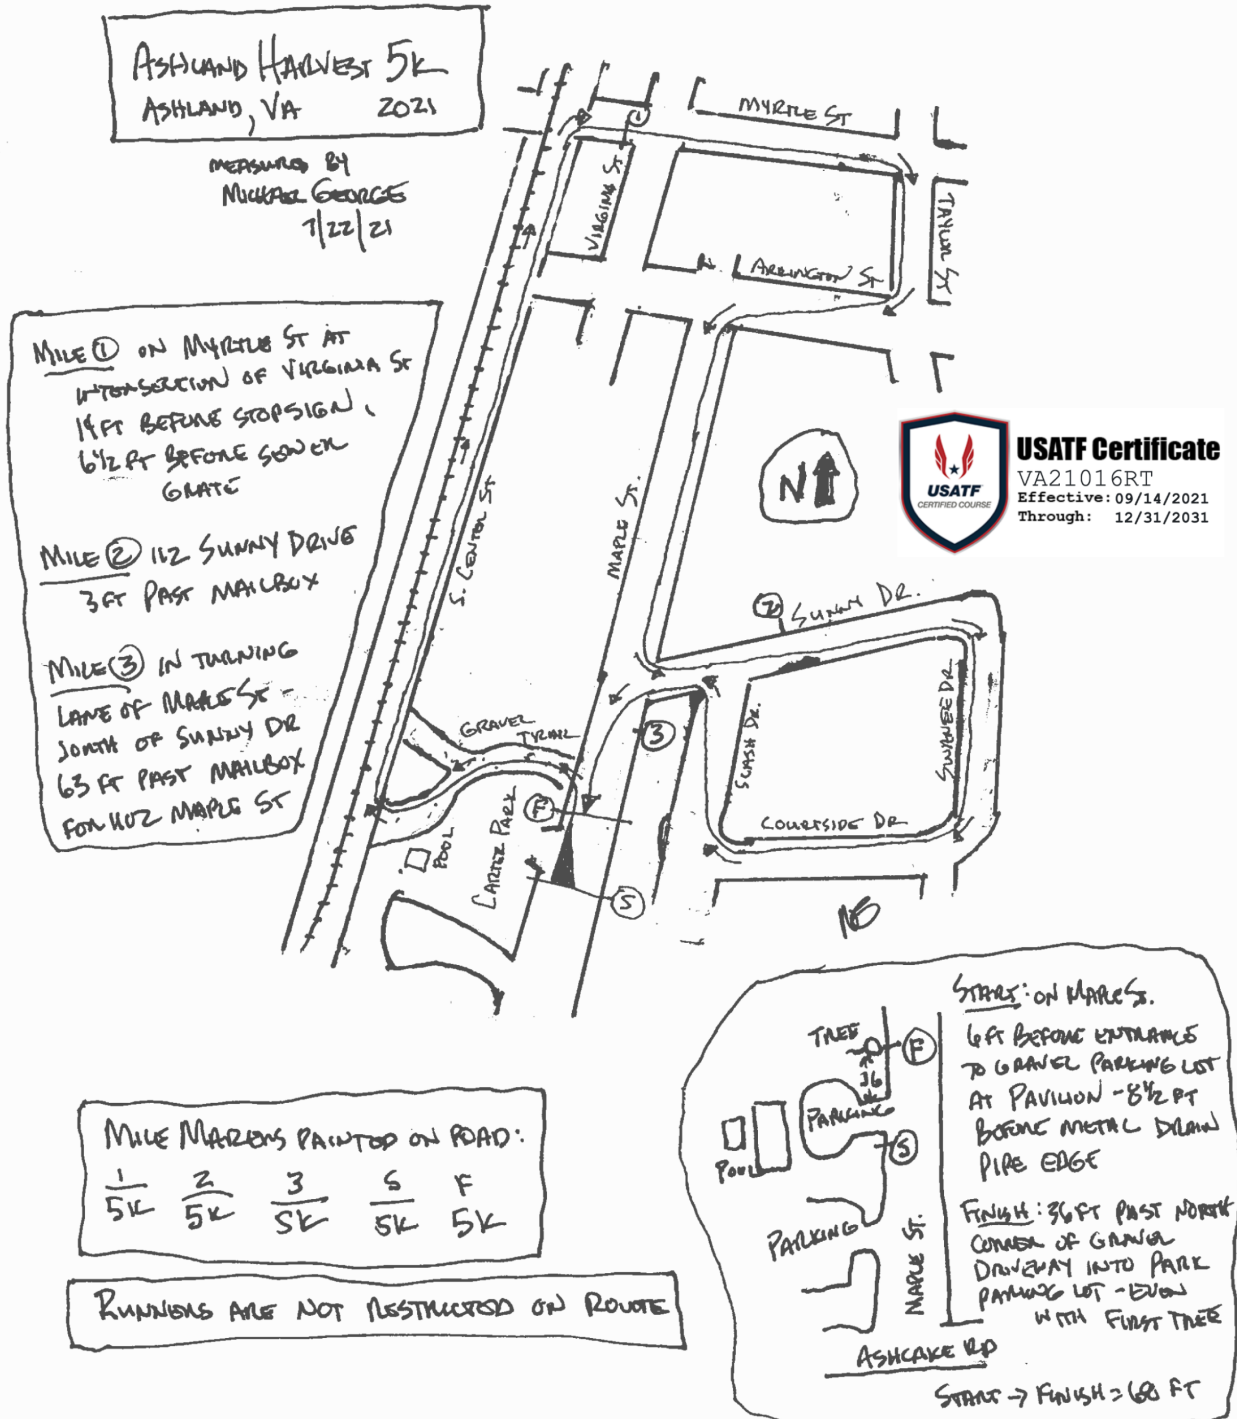 ASHLAND HARVEST 5K
ASHLAND, VA 2021
MEASURED BY
MICHAEL GEORGE
7/22/21
MILE ① ON MYRTLE ST AT
INTERSECTION OF VIRGINIA ST
14 FT BEFORE STOPSIGN,
6 1/2 FT BEFORE SEWER
GRATE
MILE ② 112 SUNNY DRIVE
3 FT PAST MAILBOX
MILE ③ IN TURNING
LANE OF MAPLE ST -
SOUTH OF SUNNY DR
63 FT PAST MAILBOX
FOR 1102 MAPLE ST
MYRTLE ST
1
VIRGINIA ST
TAYLOR ST
ARLINGTON ST
S. CENTER ST
MAPLE ST.
N
USATF
CERTIFIED COURSE
USATF Certificate
VA21016RT
Effective: 09/14/2021
Through: 12/31/2031
2
SUNNY DR.
GRAVEL
TRIAL
3
SLASH DR.
SUWANEE DR
COURTSIDE DR
F
POOL
CARTER PARK
S
NS
MILE MARKERS PAINTED ON ROAD:
1 2 3 S F
5K 5K 5K 5K 5K
RUNNERS ARE NOT RESTRICTED ON ROUTE
TREE
F
36
PARKING
S
POOL
PARKING
MAPLE ST.
ASHCAKE RD
START: ON MAPLE ST.
6 FT BEFORE ENTRANCE
TO GRAVEL PARKING LOT
AT PAVILION - 8 1/2 FT
BEFORE METAL DRAIN
PIPE EDGE
FINISH: 36 FT PAST NORTH
CORNER OF GRAVEL
DRIVEWAY INTO PARK
PARKING LOT - EVEN
WITH FIRST TREE
START → FINISH = 68 FT